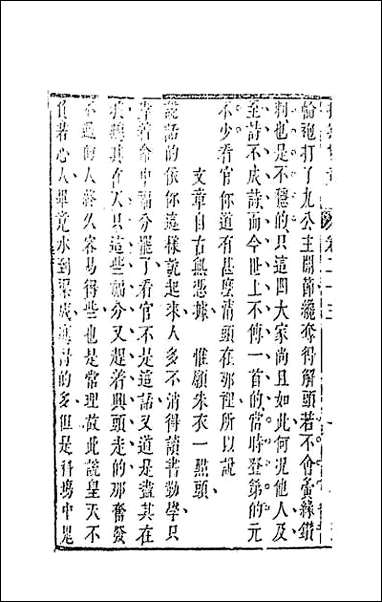 輪袍打了九公主關節纔奪得解頭若不會夤緣鑽
刺也是不穩的只這四大家尚且如此何況他人及
至詩不成詩而今世上不傳一首的當時登第的元
不少看官你道有甚麽清頭在那裡所以說
文章自古無憑據 惟願朱衣一點頭
說話的依你這樣說起來人多不消得讀書勤學只
靠着命中福分罷了看官不是這話又道是盡其在
我聽其在天只這些福分又趕着興頭走的那奮發
不過的人終久容易得些也是常理故此說皇天不
負苦心人畢竟水到渠成應得的多但是科場中鬼